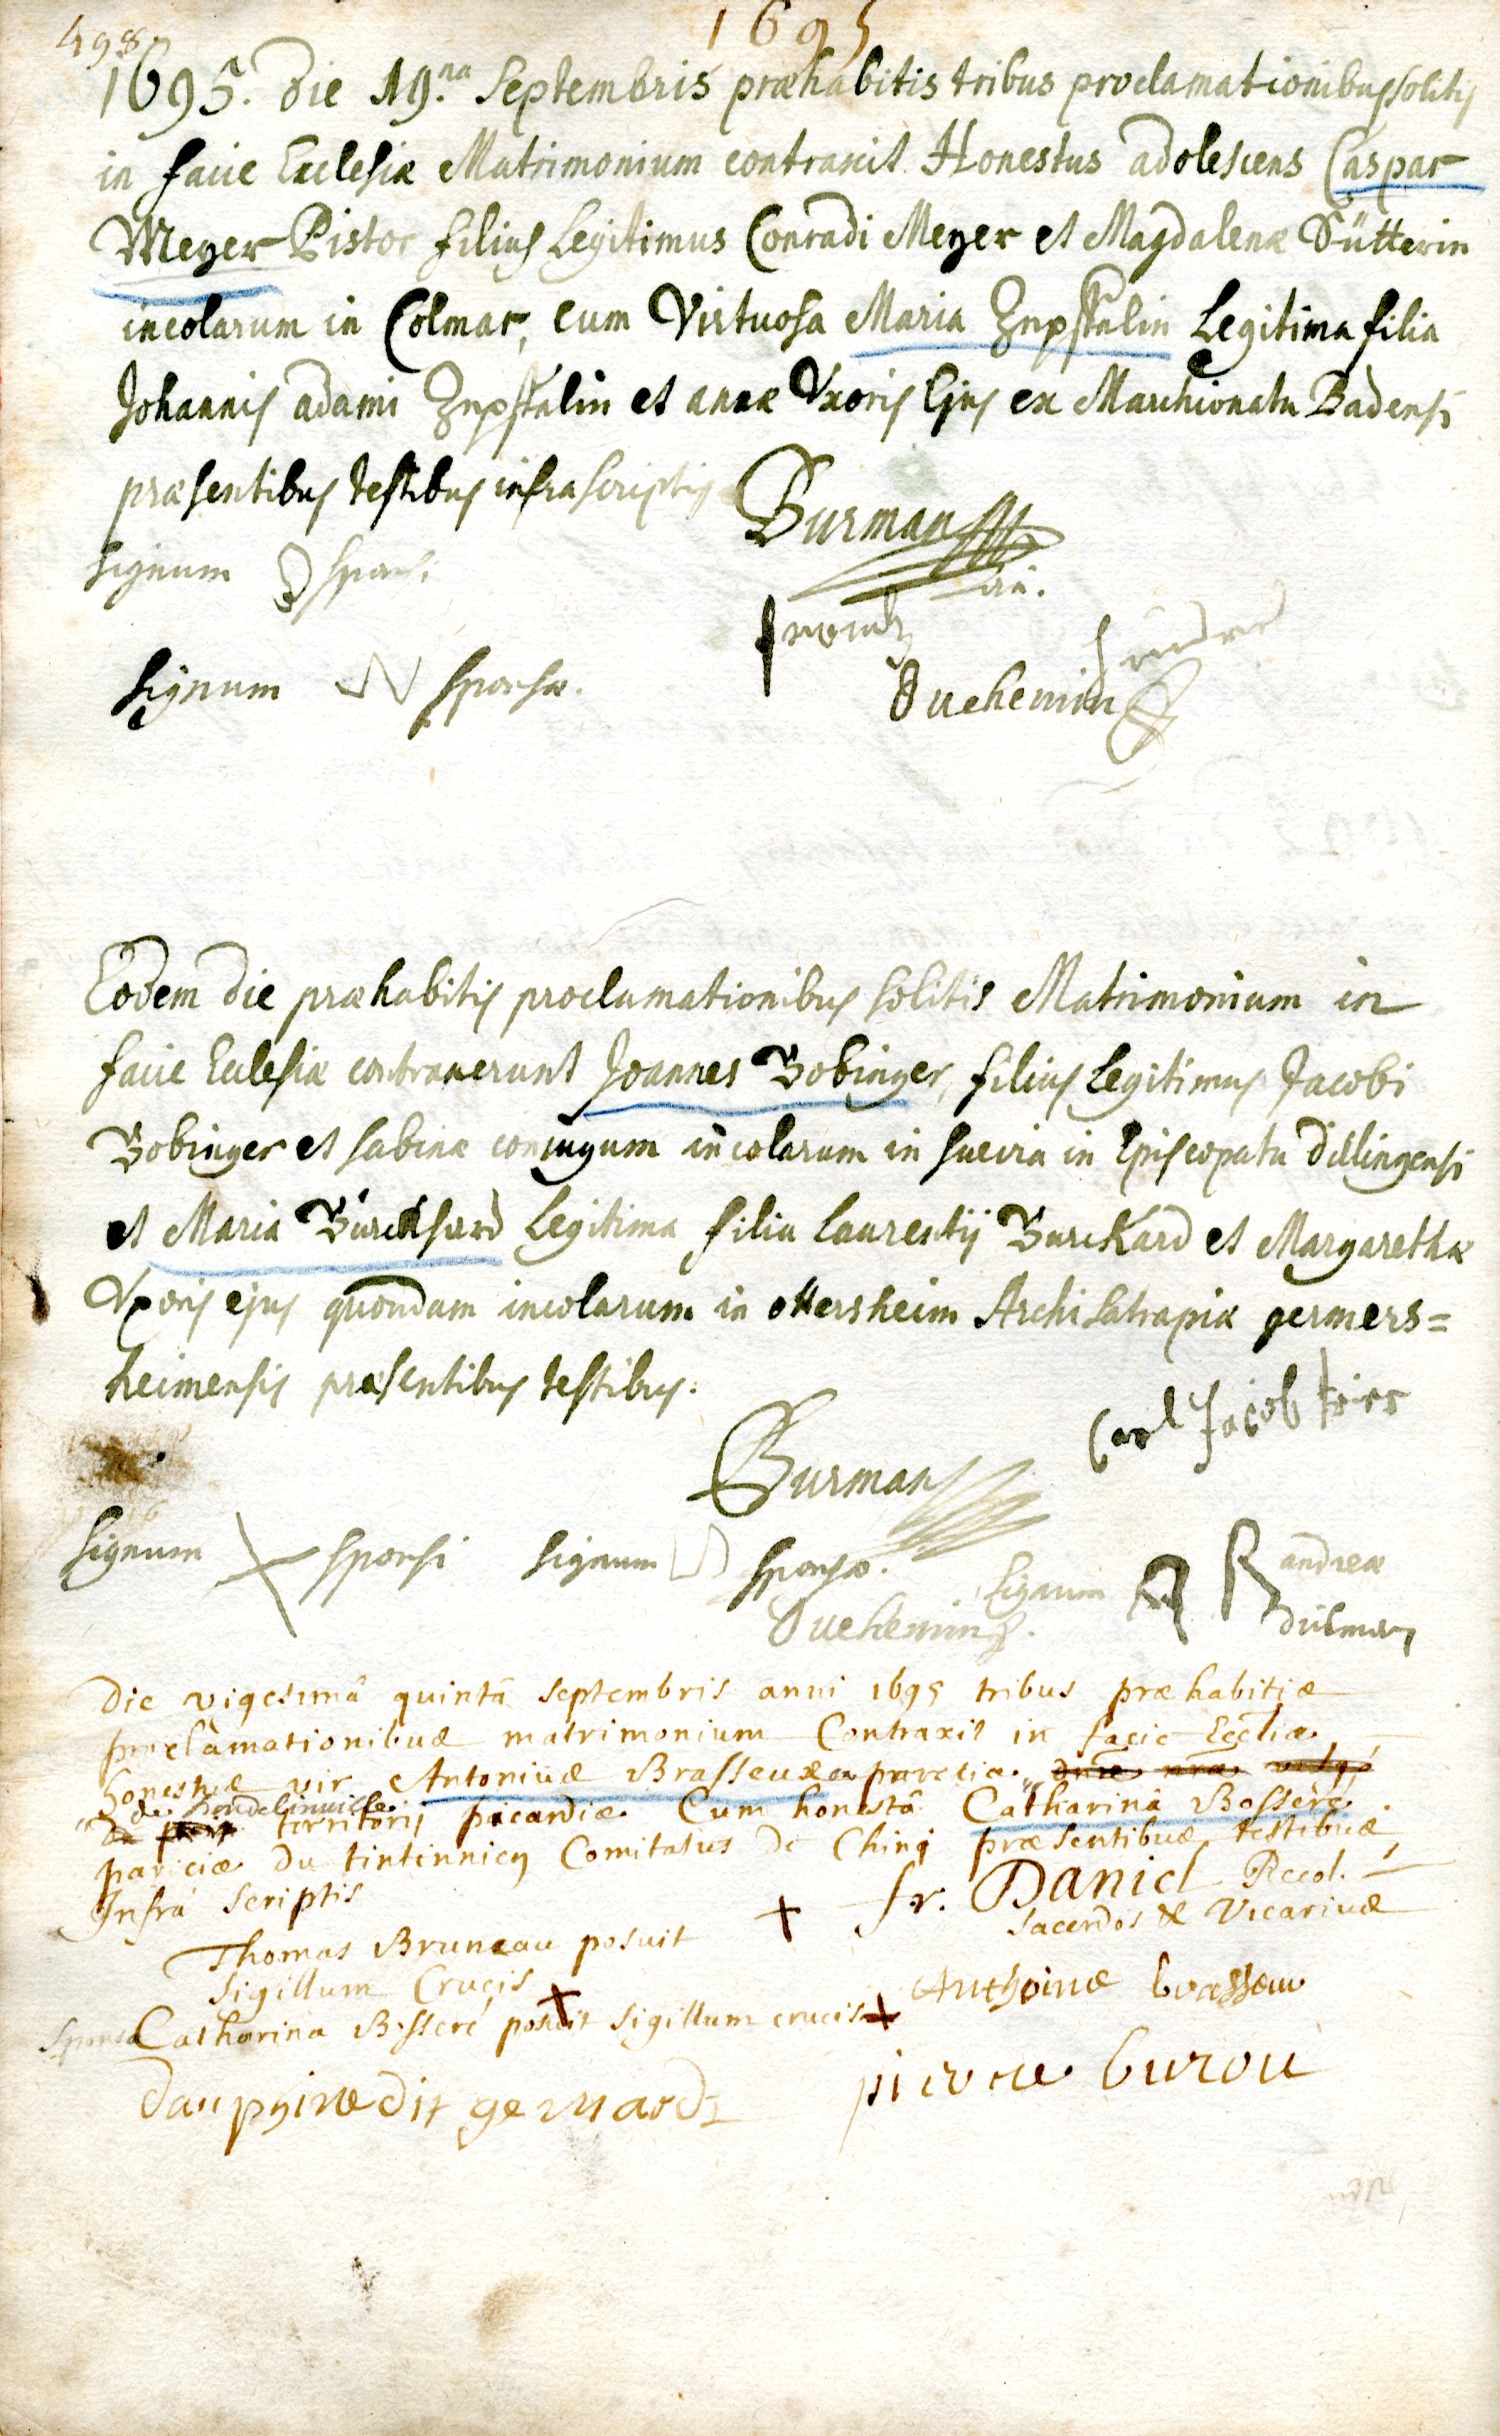 498.
1695
1695. Die 19.na Septembris præhabitis tribus proclamationibus solitis
in facie Ecclesiæ Matrimonium contraxit Honestus adolescens Caspar
Meyer Pistor filius Legitimus Conradi Meyer et Magdalenæ Sütterin
incolarum in Colmar, cum Virtuosa Maria Znpstalin Legitima filia
Johannis adami Znpstalin et annæ Vxoris Ejus ex Marchionatu Badensi
præsentibus testibus infrascriptis
Burman
signum sponsi
signum sponsæ.
Duchemin
Eodem die præhabitis proclamationibus solitis Matrimonium in
facie Ecclesiæ contraxerunt Joannes Bobinger, filius Legitimus Jacobi
Bobinger et Sabinæ conjugum incolarum in Suevia in Episcopatu Dillingensi
et Maria Burckhard Legitima filia Laurentij Burckard et Margarethæ
Vxoris ejus quondam incolarum in ottersheim Archisatrapiæ germers=
heimensis præsentibus testibus.
Carl Jacob
Burman
signum sponsi signum sponsæ.
Duchemin signum andreæ
Die vigesimâ quintâ septembris anni 1695 tribus præhabitis
proclamationibus matrimonium Contraxit in facie Eccliæ
honestus vir Antonius Brasseux parociæ
de territorij picardiæ Cum honestâ Catharinâ Bosseré
pariciæ du tintennieg Comitatus De Chinj præsentibus testibus
Infrà scriptis
fr. Daniel Recol.
sacerdos & vicarius
Thomas Bruneau posuit
sigillum Crucis +
Anthoine brasseux
sponsa Catharina Bosseré posuit sigillum crucis +
dauphine dit
pierre burou